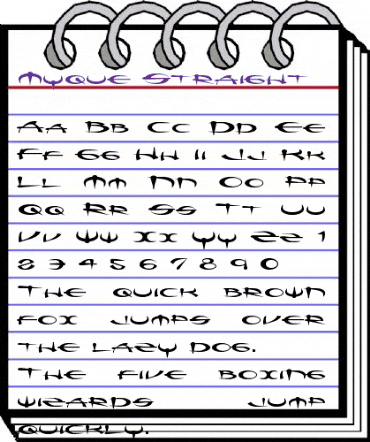 Myque Straight
Aa Bb Cc Dd Ee
Ff Gg Hh Ii Jj Kk
Ll Mm Nn Oo Pp
Qq Rr Ss Tt Uu
Vv Ww Xx Yy Zz 1
2 3 4 5 6 7 8 9 0
The quick brown
fox jumps over
the lazy dog.
The five boxing
wizards jump
quickly.